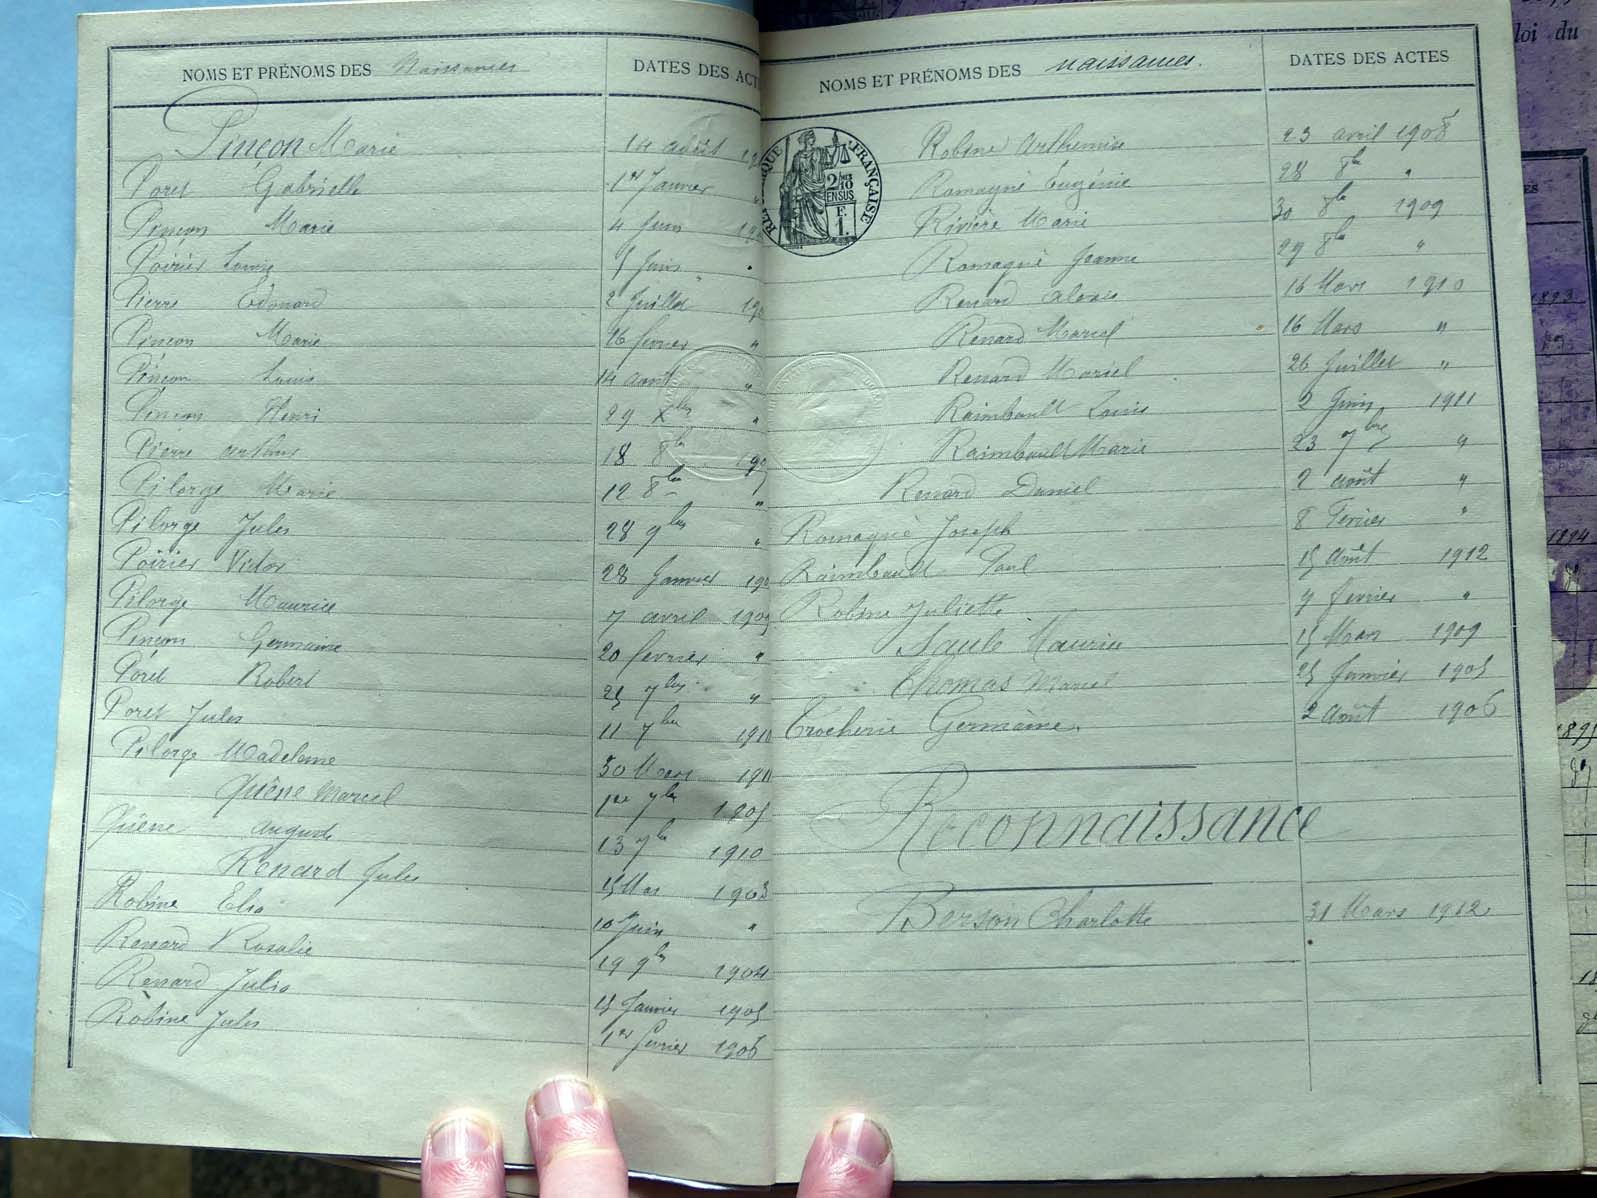 NOMS ET PRÉNOMS DES Naissances
DATES DES ACT
Pinçon Marie 14 août 19
Poret Gabrielle 1er Janvier "
Pinçon Marie 4 Juin 19
Poirier Louis 5 Juin "
Pierre Edouard 2 Juillet 190
Pinçon Marie 26 février "
Pinçon Louis 14 août "
Pinçon Henri 29 Xbre "
Pierre arthur 18 8bre 190
Pilorge Marie 12 8bre "
Pilorge Jules 28 9bre "
Poirier Victor 28 Janvier 190
Pilorge Maurice 7 avril 1909
Pinçon Germaine 20 février "
Poret Robert 25 7bre "
Poret Jules 11 7bre 1910
Pilorge Madeleine 30 Mars 191
Quène Marcel 1er 7bre 1905
Quène auguste 13 7bre 1910
Renard Jules 15 Mai 1903
Robine Elia 10 Juin "
Renard Rosalie 19 9bre 1904
Renard Julia 15 Janvier 1905
Robine Jules 1er février 1906
NOMS ET PRÉNOMS DES naissances.
DATES DES ACTES
RÉ QUE FRANÇAISE
2/10
EN SUS
F.
1.
Robine Arthemise 23 avril 1908
Romagné Eugénie 28 8bre "
Rivière Marie 30 8bre 1909
Romagné Jeanne 29 8bre "
Renard alexis 16 Mars 1910
Renard Marcel 16 Mars "
Renard Marcel 26 Juillet "
Raimbault Louis 2 Juin 1911
Raimbault Marie 23 7bre "
Renard Daniel 2 août "
Romagné Joseph 8 Février "
Raimbault Paul 15 Août 1912
Robine Juliette 9 février "
Saulé Maurice 15 Mars 1909
Thomas Marcel 25 Janvier 1905
Trocherie Germaine. 2 Août 1906
Reconnaissance
Berson Charlotte 31 Mars 1912
loi du
1893
1894
1895